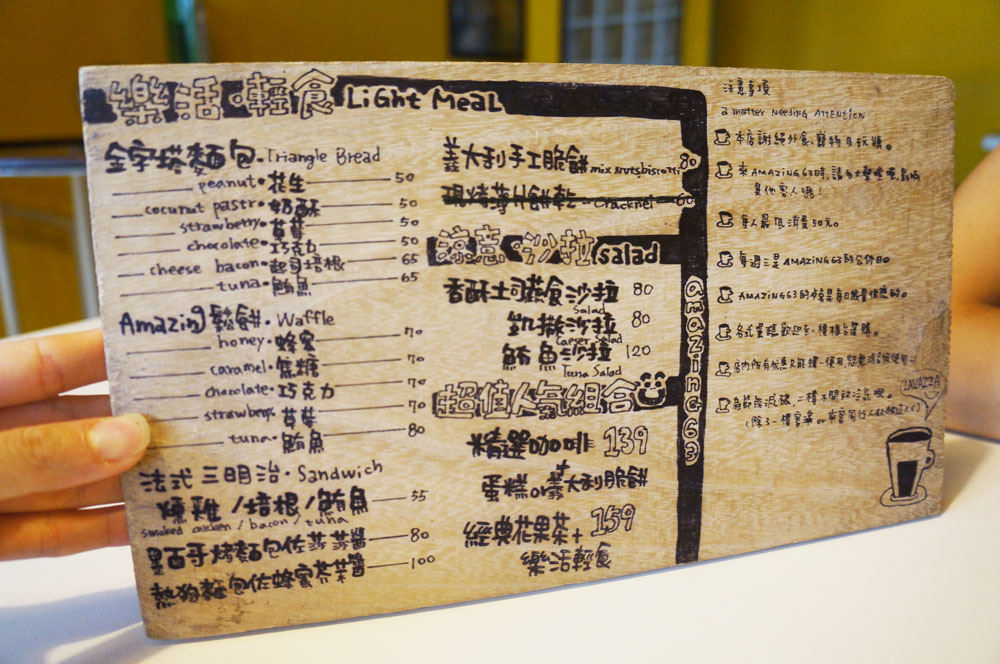 樂活·輕食 LiGht MeaL
金字塔麵包·Triangle Bread
peanut·花生 50
coconut pastr·奶酥 50
strawberry·草莓 50
chocolate·巧克力 50
cheese bacon·起司培根 65
tuna·鮪魚 65
Amazing鬆餅·Waffle
honey·蜂蜜 70
caramel·焦糖 70
chocolate·巧克力 70
strawberry·草莓 70
tuna·鮪魚 80
法式三明治·Sandwich
燻雞/培根/鮪魚 55
smoked chicken/bacon/tuna
烤麵包佐 醬 80
熱狗麵包佐蜂蜜芥茉醬 100
義大利手工脆餅 mix nutsbiscotti 80
現烤薄片餅乾 Cracknel 60
涼意·沙拉 salad
香酥土司蔬食沙拉 80
Salad
凱撒沙拉 80
Caeser Salad
鮪魚沙拉 120
Tuna Salad
超個人氣組合
精選咖啡 139
+
蛋糕or義大利脆餅
經典花果茶+ 159
樂活輕食
amazing 63
注意事項
a matter Needing ATTENTION
本店謝絕外食、寵物及玩
來AMAZiNG 63時,請勿大聲
其他客人哦!
每人最低消費50元。
每週三是AMAZiNG 63的公休日。
AMAZiNG 63的 是每日限量供應的。
店內所有優惠只能擇一使用
為節能減碳,二樓不開放冷氣喔。
LAVAZZA